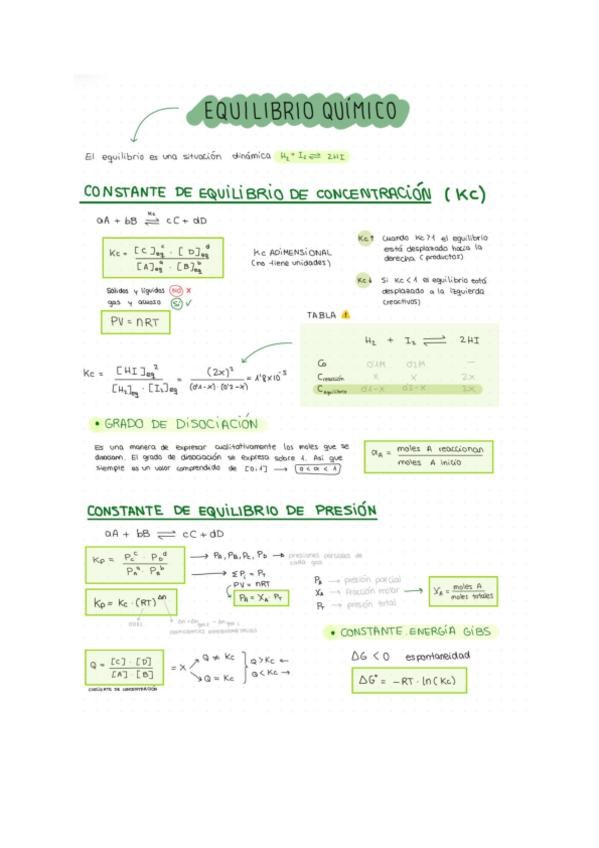 EQUILIBRIO QUÍMICO
El equilibrio es una situación dinámica H₂ + I₂ ⇌ 2HI
CONSTANTE DE EQUILIBRIO DE CONCENTRACIÓN (Kc)
aA + bB ⇌ cC + dD
Kc
Kc = [C]eq^c · [D]eq^d / [A]eq^a · [B]eq^b
Kc ADIMENSIONAL
(no tiene unidades)
Kc↑ Cuando Kc>1 el equilibrio
está desplazado hacia la
derecha (productos)
Kc↓ Si Kc<1 es equilibrio está
desplazado a la izquierda
(reactivos)
Sólidos y líquidos NO ✗
gas y acuoso SÍ ✓
PV = nRT
TABLA
H₂ + I₂ ⇌ 2HI
C₀ 0'1M 0'2M —
C reacción x x 2x
C equilibrio 0'1-x 0'2-x 2x
Kc = [HI]eq² / [H₂]eq · [I₂]eq = (2x)² / (0'1-x)·(0'2-x) = 1'8×10⁻⁵
• GRADO DE DISOCIACIÓN
Es una manera de expresar cualitativamente los moles que se
disocian. El grado de disociación se expresa sobre 1. Así que
siempre es un valor comprendido de [0,1] → 0 < α < 1
αA = moles A reaccionan / moles A inicio
CONSTANTE DE EQUILIBRIO DE PRESIÓN
aA + bB ⇌ cC + dD
Kp = Pc^c · PD^d / PA^a · PB^b
→ PA, PB, PC, PD → presiones parciales de
cada gas
→ ΣPi = PT
PV = nRT
PA = XA · PT
Kp = Kc · (RT)^Δn
PA → presión parcial
XA → fracción molar → XA = moles A / moles totales
PT → presión total
• CONSTANTE ENERGÍA GIBS
Q = [C]·[D] / [A]·[B] = X
Q ≠ Kc
Q = Kc
Q > Kc ←
Q < Kc →
COCIENTE DE CONCENTRACIÓN
ΔG < 0 espontaneidad
ΔG° = -RT · ln(Kc)